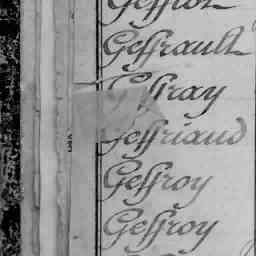 Geffrot
Geffrault
Geffray
Geffriaud
Geffroy
Geffroy